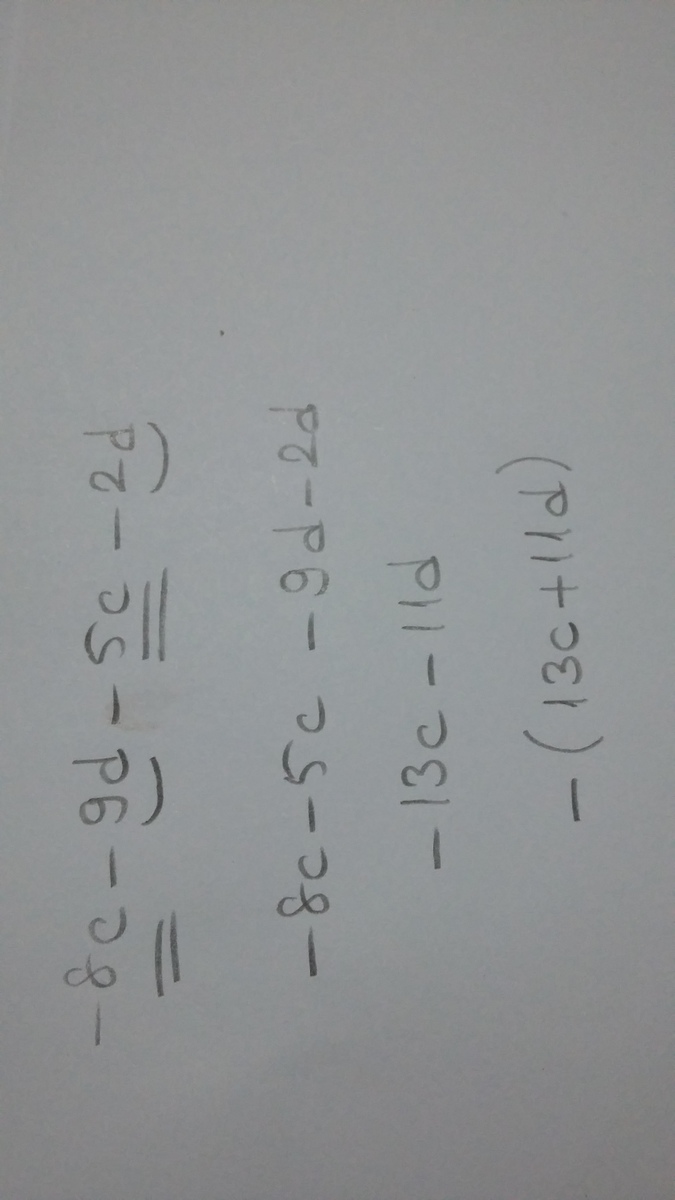 -8c - 9d - 5c - 2d
-8c - 5c - 9d - 2d
-13c - 11d
-(13c + 11d)